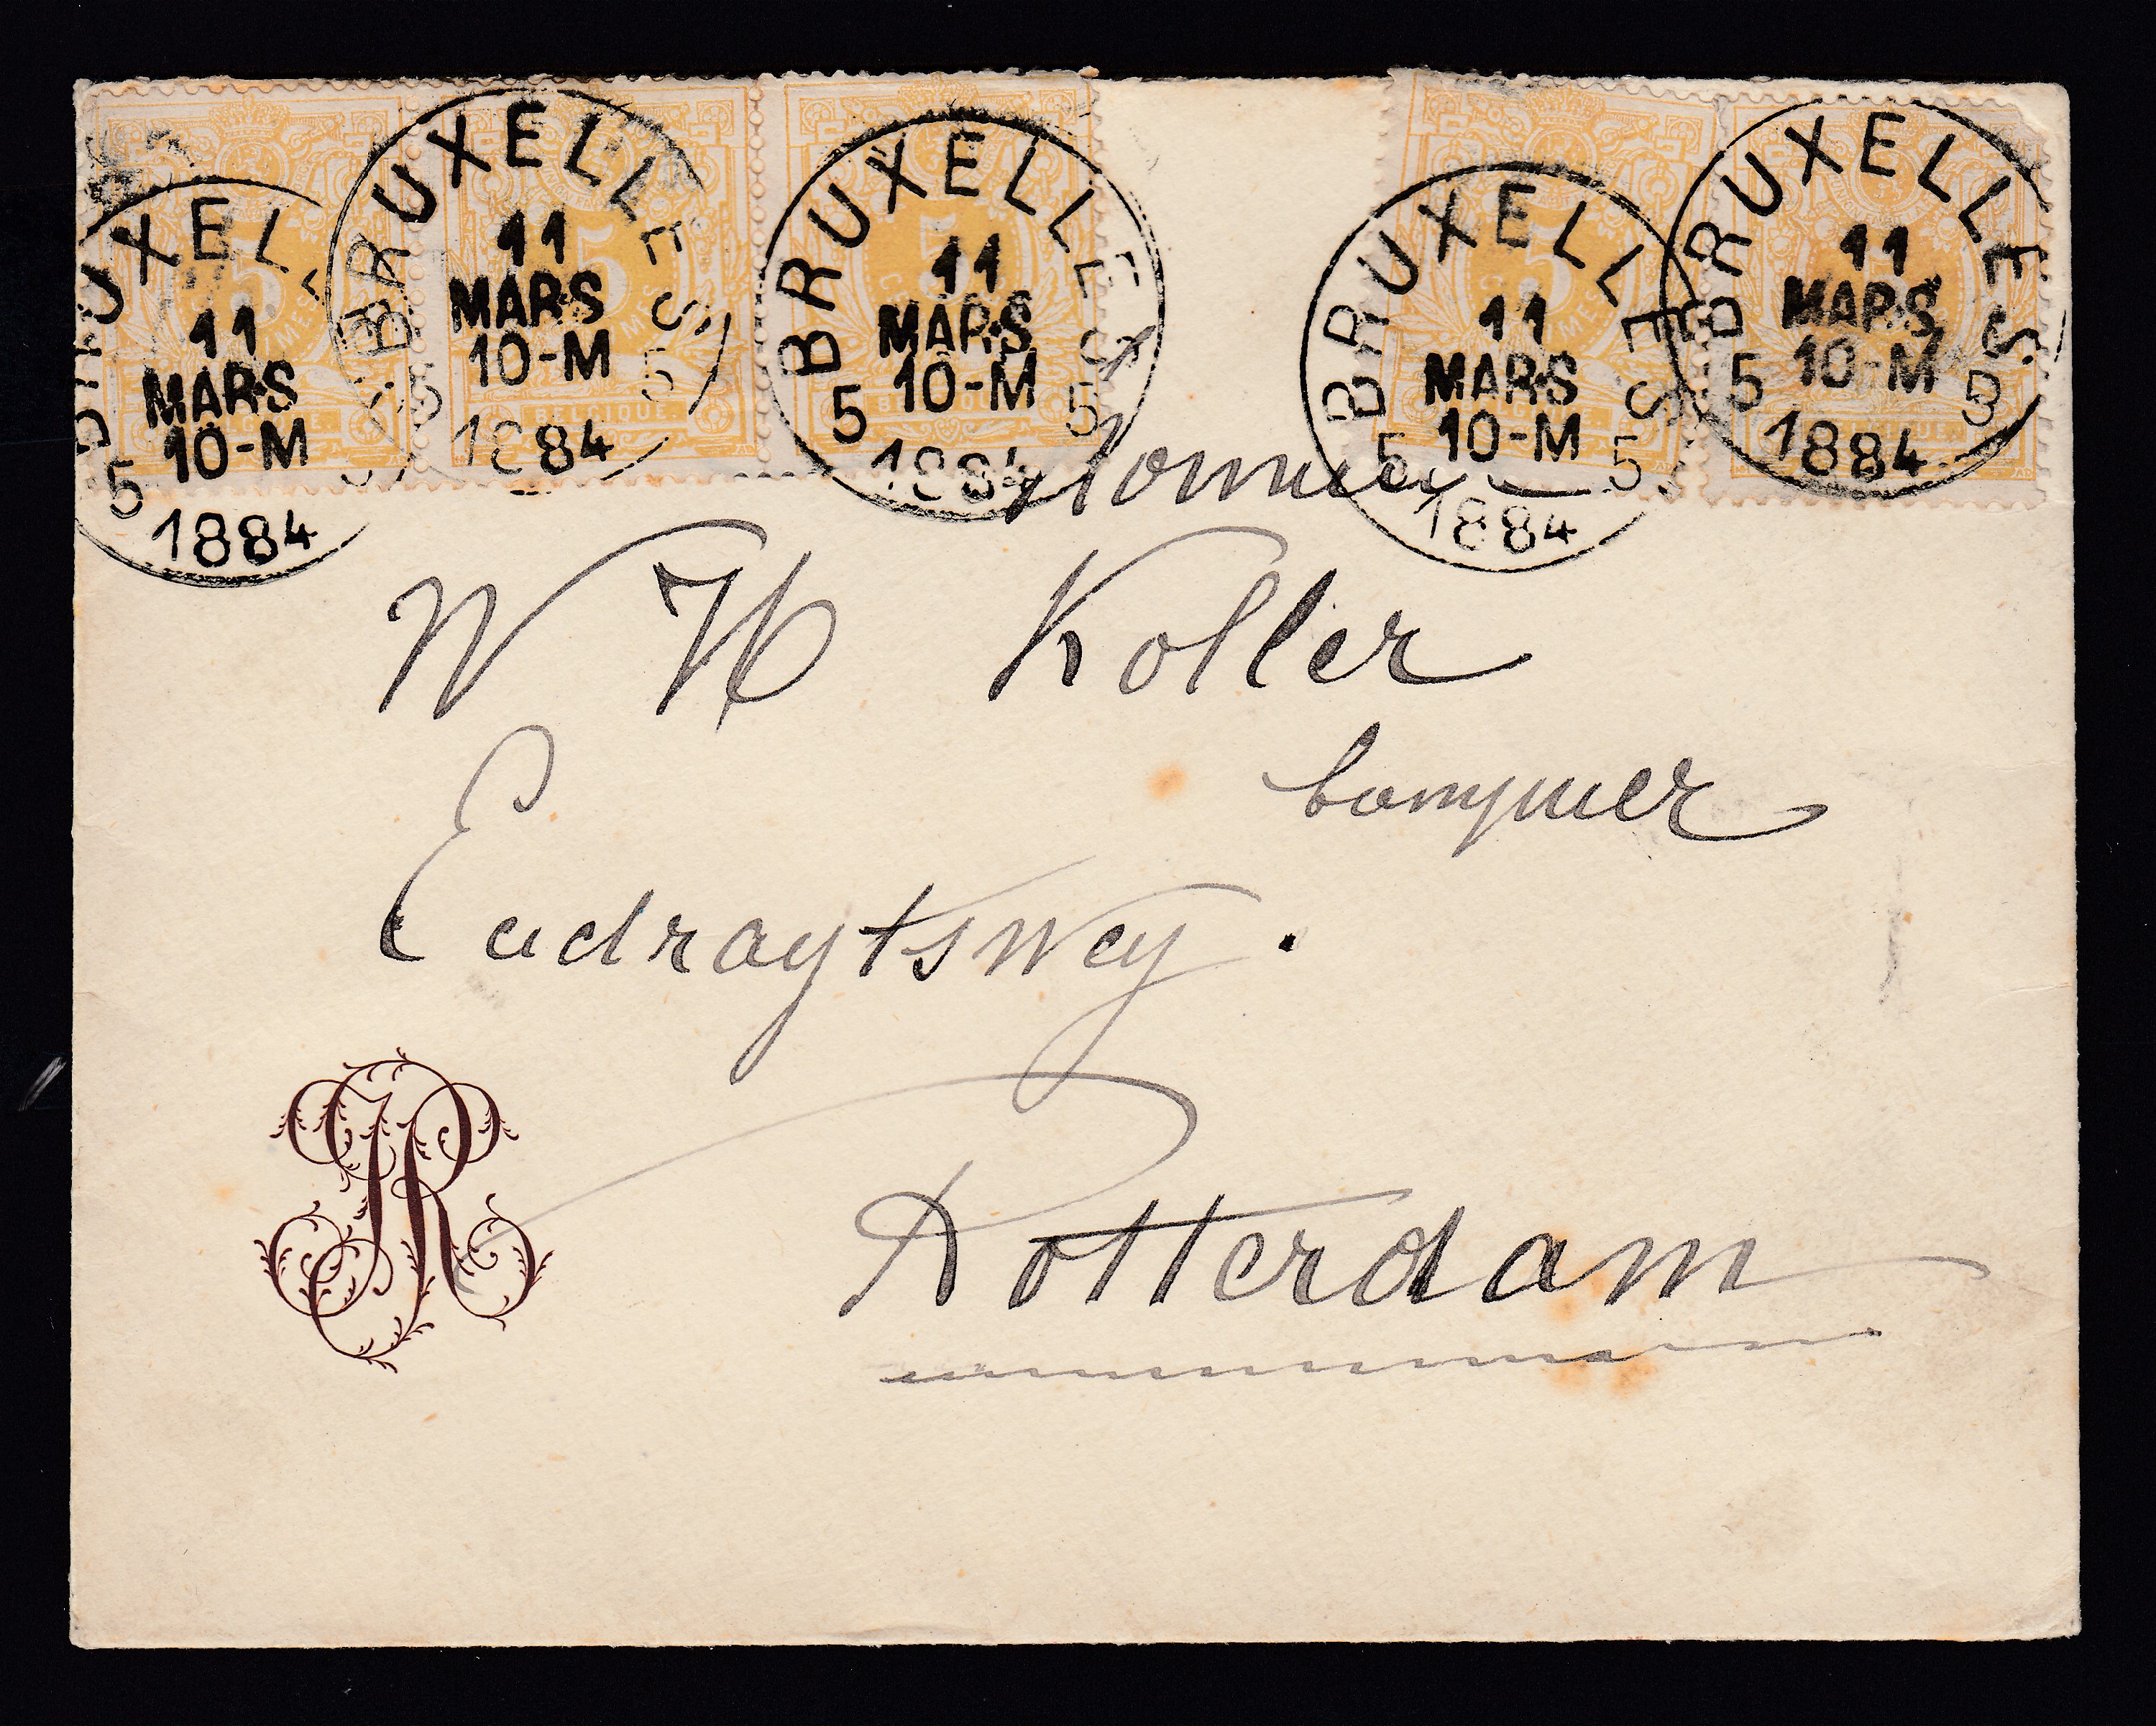 BRUXELLES 5 11 MARS 10-M 5 1884
BRUXELLES 5 11 MARS 10-M 5 1884
BRUXELLES 5 11 MARS 10-M 5 1884
BRUXELLES 5 11 MARS 10-M 5 1884
BRUXELLES 5 11 MARS 10-M 5 1884
5
BELGIQUE
W H Koller
Eudragtswey.
Rotterdam